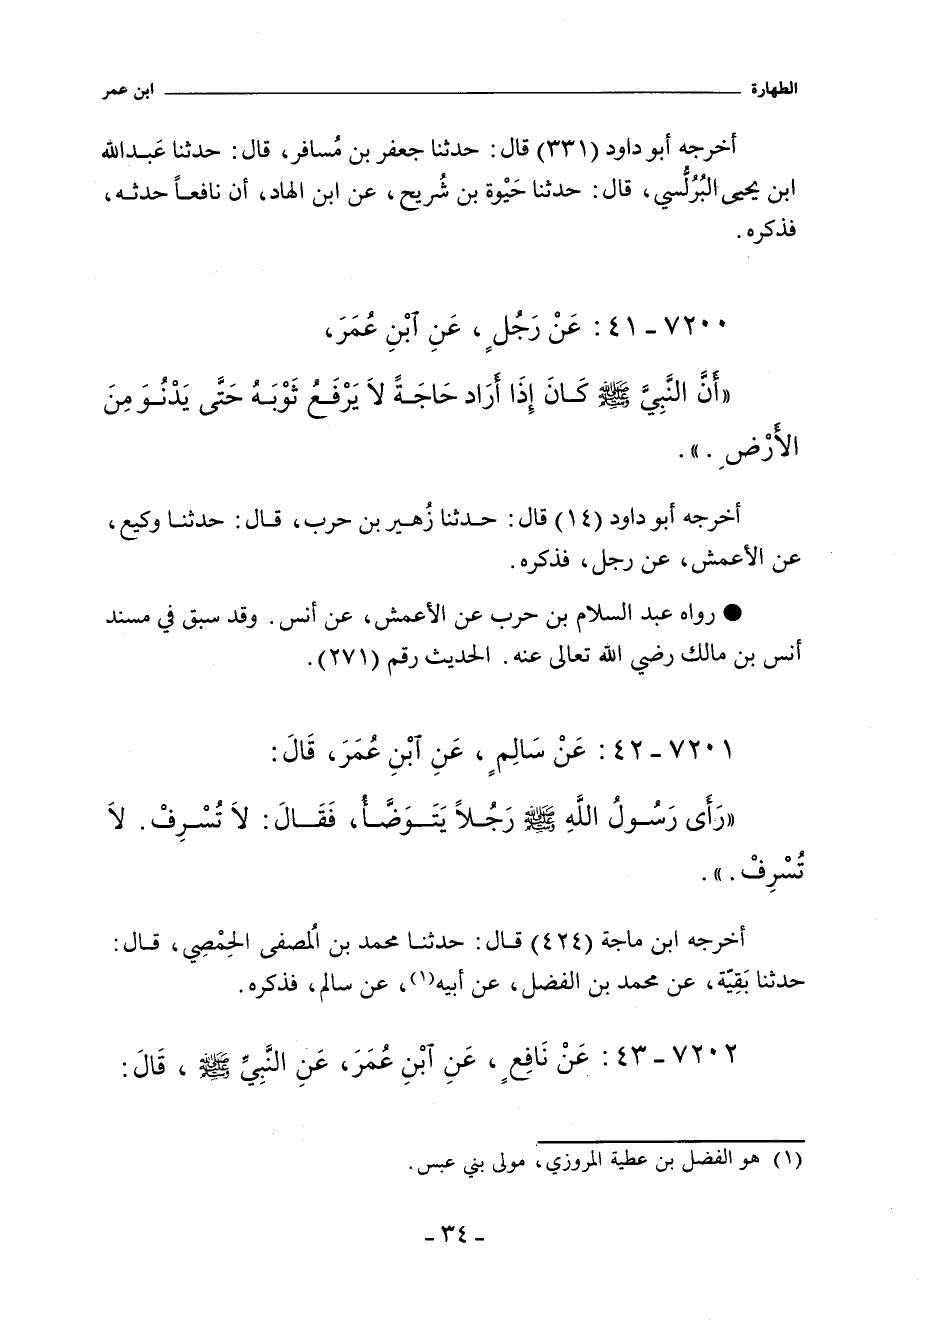 الطهارة ـــــــــــــ ابن عمر
أخرجه أبو داود (٣٣١) قال: حدثنا جعفر بن مُسافر، قال: حدثنا عَبـدالله
ابن يحيى البُرُلُّسي، قال: حدثنا حَيْوة بن شُريح، عن ابن الهاد، أن نافعـاً حدثـه،
فذكره.
٧٢٠٠ ـ ٤١: عَنْ رَجُلٍ، عَنِ ٱبْنِ عُمَرَ،
«أَنَّ النَّبِيَّ ﷺ كَـانَ إِذَا أَرَادَ حَاجَـةً لاَ يَرْفَـعُ ثَوْبَـهُ حَتَّى يَدْنُـوَ مِنَ
الأَرْضِ.».
أخرجه أبو داود (١٤) قال: حـدثنا زُهـير بن حرب، قـال: حدثنـا وكيع،
عن الأعمش، عن رجل، فذكره.
● رواه عبد السلام بن حرب عن الأعمش، عن أنس. وقد سبق في مسند
أنس بن مالك رضي الله تعالى عنه. الحديث رقم (٢٧١).
٧٢٠١ ـ ٤٢: عَنْ سَالِمٍ، عَنِ ٱبْنِ عُمَرَ، قَالَ:
«رَأَى رَسُـولُ اللَّهِ ﷺ رَجُـلاً يَتَـوَضَّـأُ، فَقَـالَ: لاَ تُسْـرِفْ. لاَ
تُسْرِفْ.».
أخرجه ابن ماجة (٤٢٤) قـال: حدثنـا محمد بن المُصفى الحِمْصِي، قـال:
حدثنا بَقِيّة، عن محمد بن الفضل، عن أبيه(١)، عن سالم، فذكره.
٧٢٠٢ ـ ٤٣: عَنْ نَافِعٍ، عَنِ ٱبْنِ عُمَرَ، عَنِ النَّبِيِّ ﷺ، قَالَ:
(١) هو الفضل بن عطية المروزي، مولى بني عبس.
ـ ٣٤ ـ